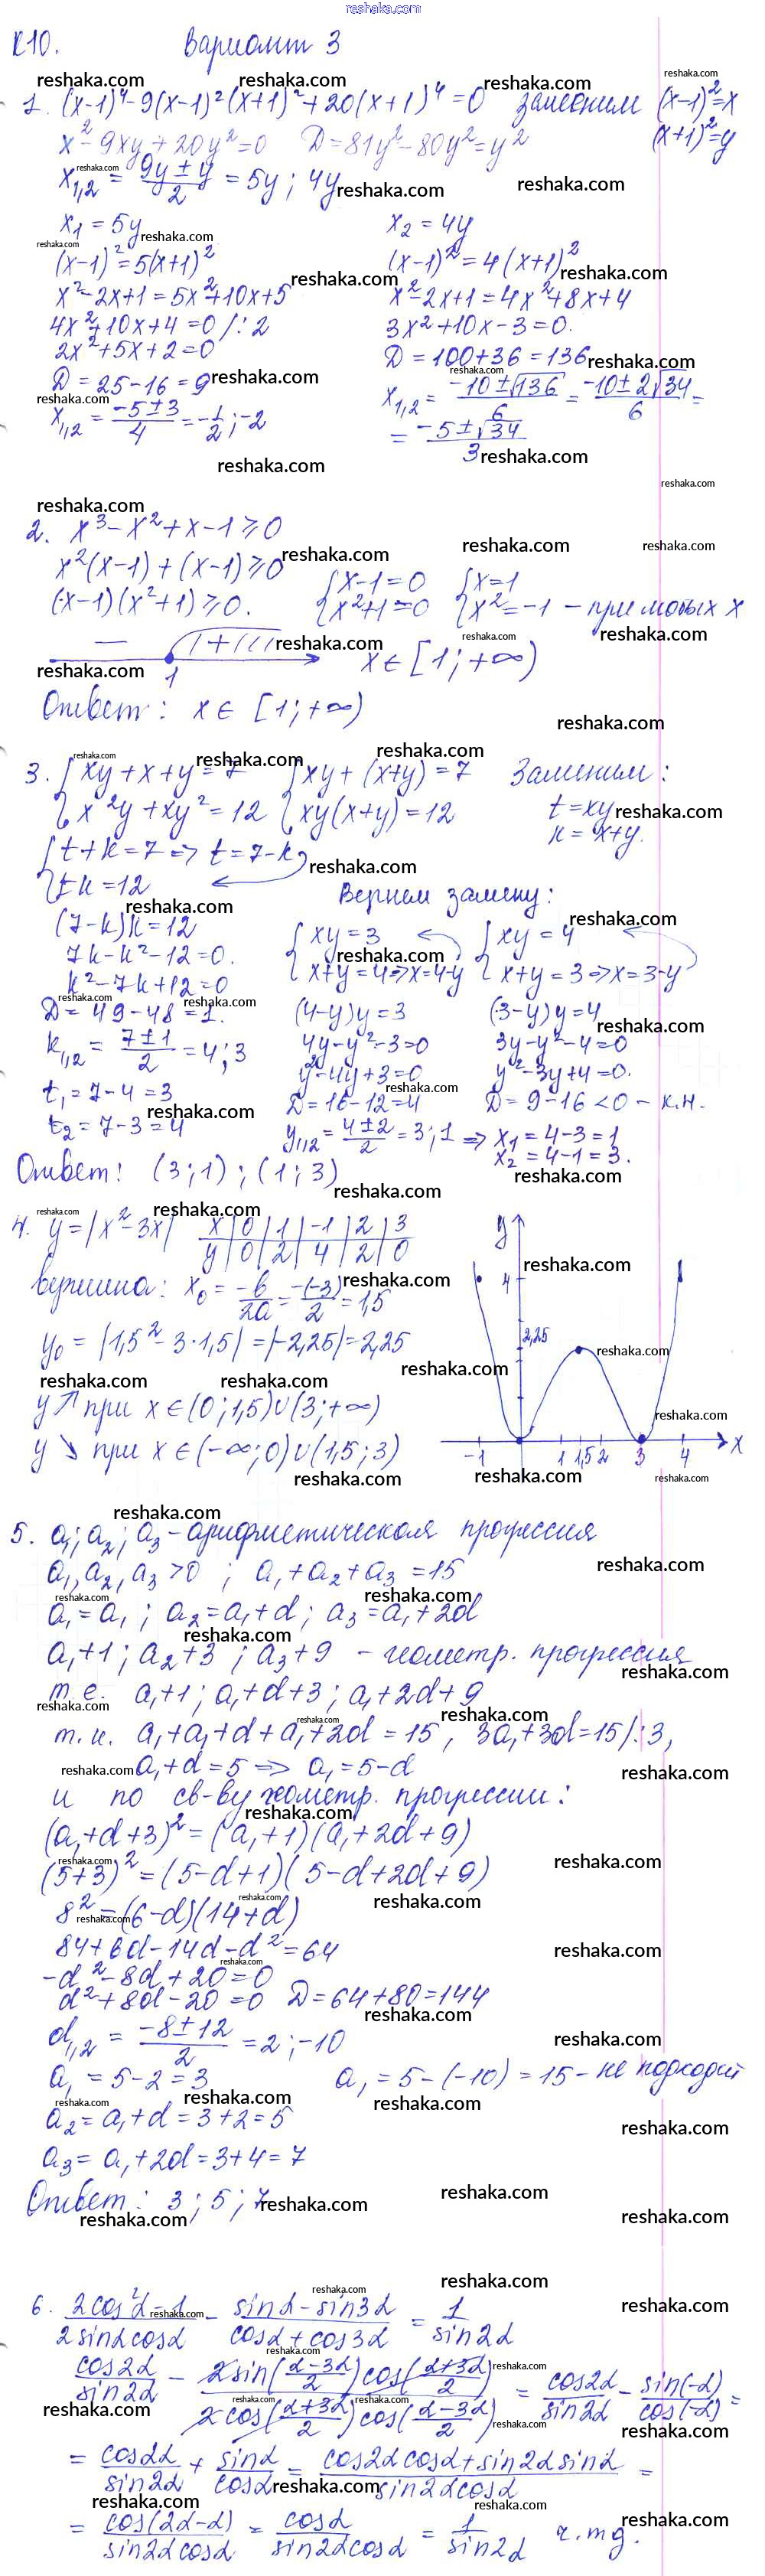 reshaka.com
К10. Вариант 3
1. (x-1)⁴-9(x-1)²(x+1)²+20(x+1)⁴=0 заменим (x-1)²=x
(x+1)²=y
x²-9xy+20y²=0 D=81y²-80y²=y²
x₁,₂ = (9y±y)/2 = 5y; 4y
x₁=5y x₂=4y
(x-1)²=5(x+1)² (x-1)²=4(x+1)²
x²-2x+1=5x²+10x+5 x²-2x+1=4x²+8x+4
4x²+10x+4=0 /:2 3x²+10x-3=0.
2x²+5x+2=0 D=100+36=136
D=25-16=9 x₁,₂ = (-10±√136)/6 = (-10±2√34)/6 =
x₁,₂ = (-5±3)/4 = -1/2; -2 = (-5±√34)/3
2. x³-x²+x-1≥0
x²(x-1)+(x-1)≥0
(x-1)(x²+1)≥0. {x-1=0 x²+1=0 {x=1 x²=-1 - при любых x
— 1 + x∈[1;+∞)
Ответ: x∈[1;+∞)
3. {xy+x+y=7 {xy+(x+y)=7 Заменим:
x²y+xy²=12 xy(x+y)=12 t=xy
k=x+y.
{t+k=7 => t=7-k
tk=12 Вернем замену:
(7-k)k=12 {xy=3 {xy=4
7k-k²-12=0. x+y=4=>x=4-y x+y=3=>x=3-y
k²-7k+12=0
D=49-48=1. (4-y)y=3 (3-y)y=4
k₁,₂ = (7±1)/2 = 4; 3 4y-y²-3=0 3y-y²-4=0
y²-4y+3=0 y²-3y+4=0.
t₁=7-4=3 D=16-12=4 D=9-16<0 - к.н.
t₂=7-3=4 y₁,₂ = (4±2)/2 = 3; 1 => x₁=4-3=1
x₂=4-1=3.
Ответ: (3;1); (1;3)
4. y=|x²-3x| x | 0 | 1 | -1 | 2 | 3
y | 0 | 2 | 4 | 2 | 0
вершина: x₀ = -b/2a = -(-3)/2 = 1,5
y₀ = |1,5²-3·1,5| = |-2,25| = 2,25
y↗ при x∈(0;1,5)∪(3;+∞)
y↘ при x∈(-∞;0)∪(1,5;3)
y 4 2,25 -1 1 1,5 2 3 4 x
5. a₁; a₂; a₃ - арифметическая прогрессия
a₁, a₂, a₃ >0; a₁+a₂+a₃=15
a₁=a₁; a₂=a₁+d; a₃=a₁+2d
a₁+1; a₂+3; a₃+9 - геометр. прогрессия
т.е. a₁+1; a₁+d+3; a₁+2d+9
т.к. a₁+a₁+d+a₁+2d=15, 3a₁+3d=15/:3,
a₁+d=5 => a₁=5-d
и по св-ву геометр. прогрессии:
(a₁+d+3)²=(a₁+1)(a₁+2d+9)
(5+3)²=(5-d+1)(5-d+2d+9)
8²=(6-d)(14+d)
84+6d-14d-d²=64
-d²-8d+20=0
d²+8d-20=0 D=64+80=144
d₁,₂ = (-8±12)/2 = 2; -10
a₁=5-2=3 a₁=5-(-10)=15 - не подходит
a₂=a₁+d=3+2=5
a₃=a₁+2d=3+4=7
Ответ: 3; 5; 7
6. (2cos²α-1)/(2sinαcosα) - (sinα-sin3α)/(cosα+cos3α) = 1/sin2α
cos2α/sin2α - (2sin((α-3α)/2)cos((α+3α)/2))/(2cos((α+3α)/2)cos((α-3α)/2)) = cos2α/sin2α - sin(-α)/cos(-α) =
= cos2α/sin2α + sinα/cosα = (cos2αcosα+sin2αsinα)/(sin2αcosα) =
= cos(2α-α)/(sin2αcosα) = cosα/(sin2αcosα) = 1/sin2α ч.тд.